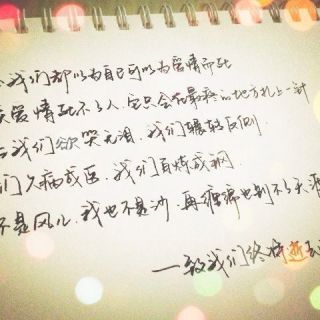 我们都以为自己可以为爱情而死
爱情死不了人,它只会在最疼的地方扎上一针
后我们欲哭无泪,我们辗转反侧.
们久病成医,我们百炼成钢.
不是风儿,我也不是沙,再缠绵也到不了天涯
—致我们终将逝去